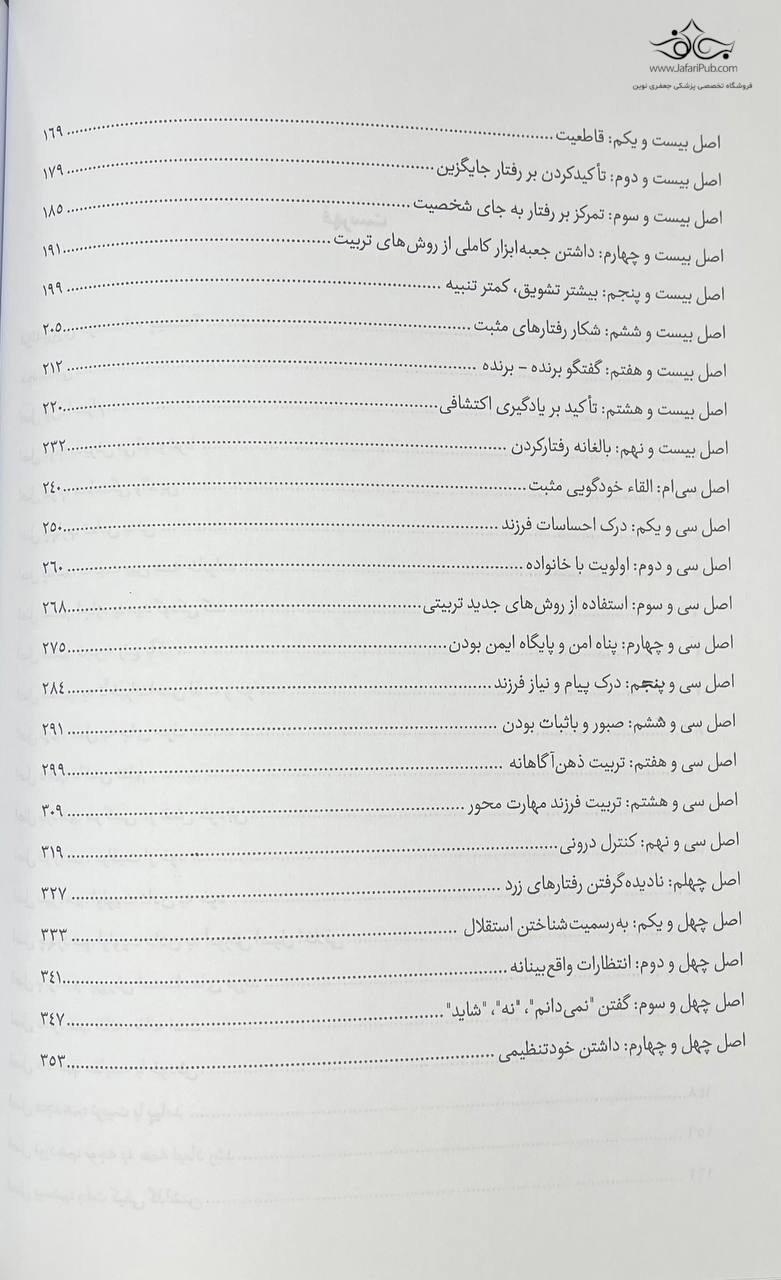 www.JafariPub.com
فروشگاه تخصصی پزشکی جعفری نوین
اصل بیست و یکم: قاطعیت ........ ۱۶۹
اصل بیست و دوم: تأکیدکردن بر رفتار جایگزین ........ ۱۷۹
اصل بیست و سوم: تمرکز بر رفتار به جای شخصیت ........ ۱۸۵
اصل بیست و چهارم: داشتن جعبه‌ابزار کاملی از روش‌های تربیت ........ ۱۹۱
اصل بیست و پنجم: بیشتر تشویق، کمتر تنبیه ........ ۱۹۹
اصل بیست و ششم: شکار رفتارهای مثبت ........ ۲۰۵
اصل بیست و هفتم: گفتگو برنده - برنده ........ ۲۱۲
اصل بیست و هشتم: تأکید بر یادگیری اکتشافی ........ ۲۲۰
اصل بیست و نهم: بالغانه رفتارکردن ........ ۲۳۲
اصل سی‌ام: القاء خودگویی مثبت ........ ۲۴۰
اصل سی و یکم: درک احساسات فرزند ........ ۲۵۰
اصل سی و دوم: اولویت با خانواده ........ ۲۶۰
اصل سی و سوم: استفاده از روش‌های جدید تربیتی ........ ۲۶۸
اصل سی و چهارم: پناه امن و پایگاه ایمن بودن ........ ۲۷۵
اصل سی و پنجم: درک پیام و نیاز فرزند ........ ۲۸۴
اصل سی و ششم: صبور و باثبات بودن ........ ۲۹۱
اصل سی و هفتم: تربیت ذهن‌آگاهانه ........ ۲۹۹
اصل سی و هشتم: تربیت فرزند مهارت محور ........ ۳۰۹
اصل سی و نهم: کنترل درونی ........ ۳۱۹
اصل چهلم: نادیده‌گرفتن رفتارهای زرد ........ ۳۲۷
اصل چهل و یکم: به‌رسمیت‌شناختن استقلال ........ ۳۳۳
اصل چهل و دوم: انتظارات واقع‌بینانه ........ ۳۴۱
اصل چهل و سوم: گفتن "نمی‌دانم"، "نه"، "شاید" ........ ۳۴۷
اصل چهل و چهارم: داشتن خودتنظیمی ........ ۳۵۳